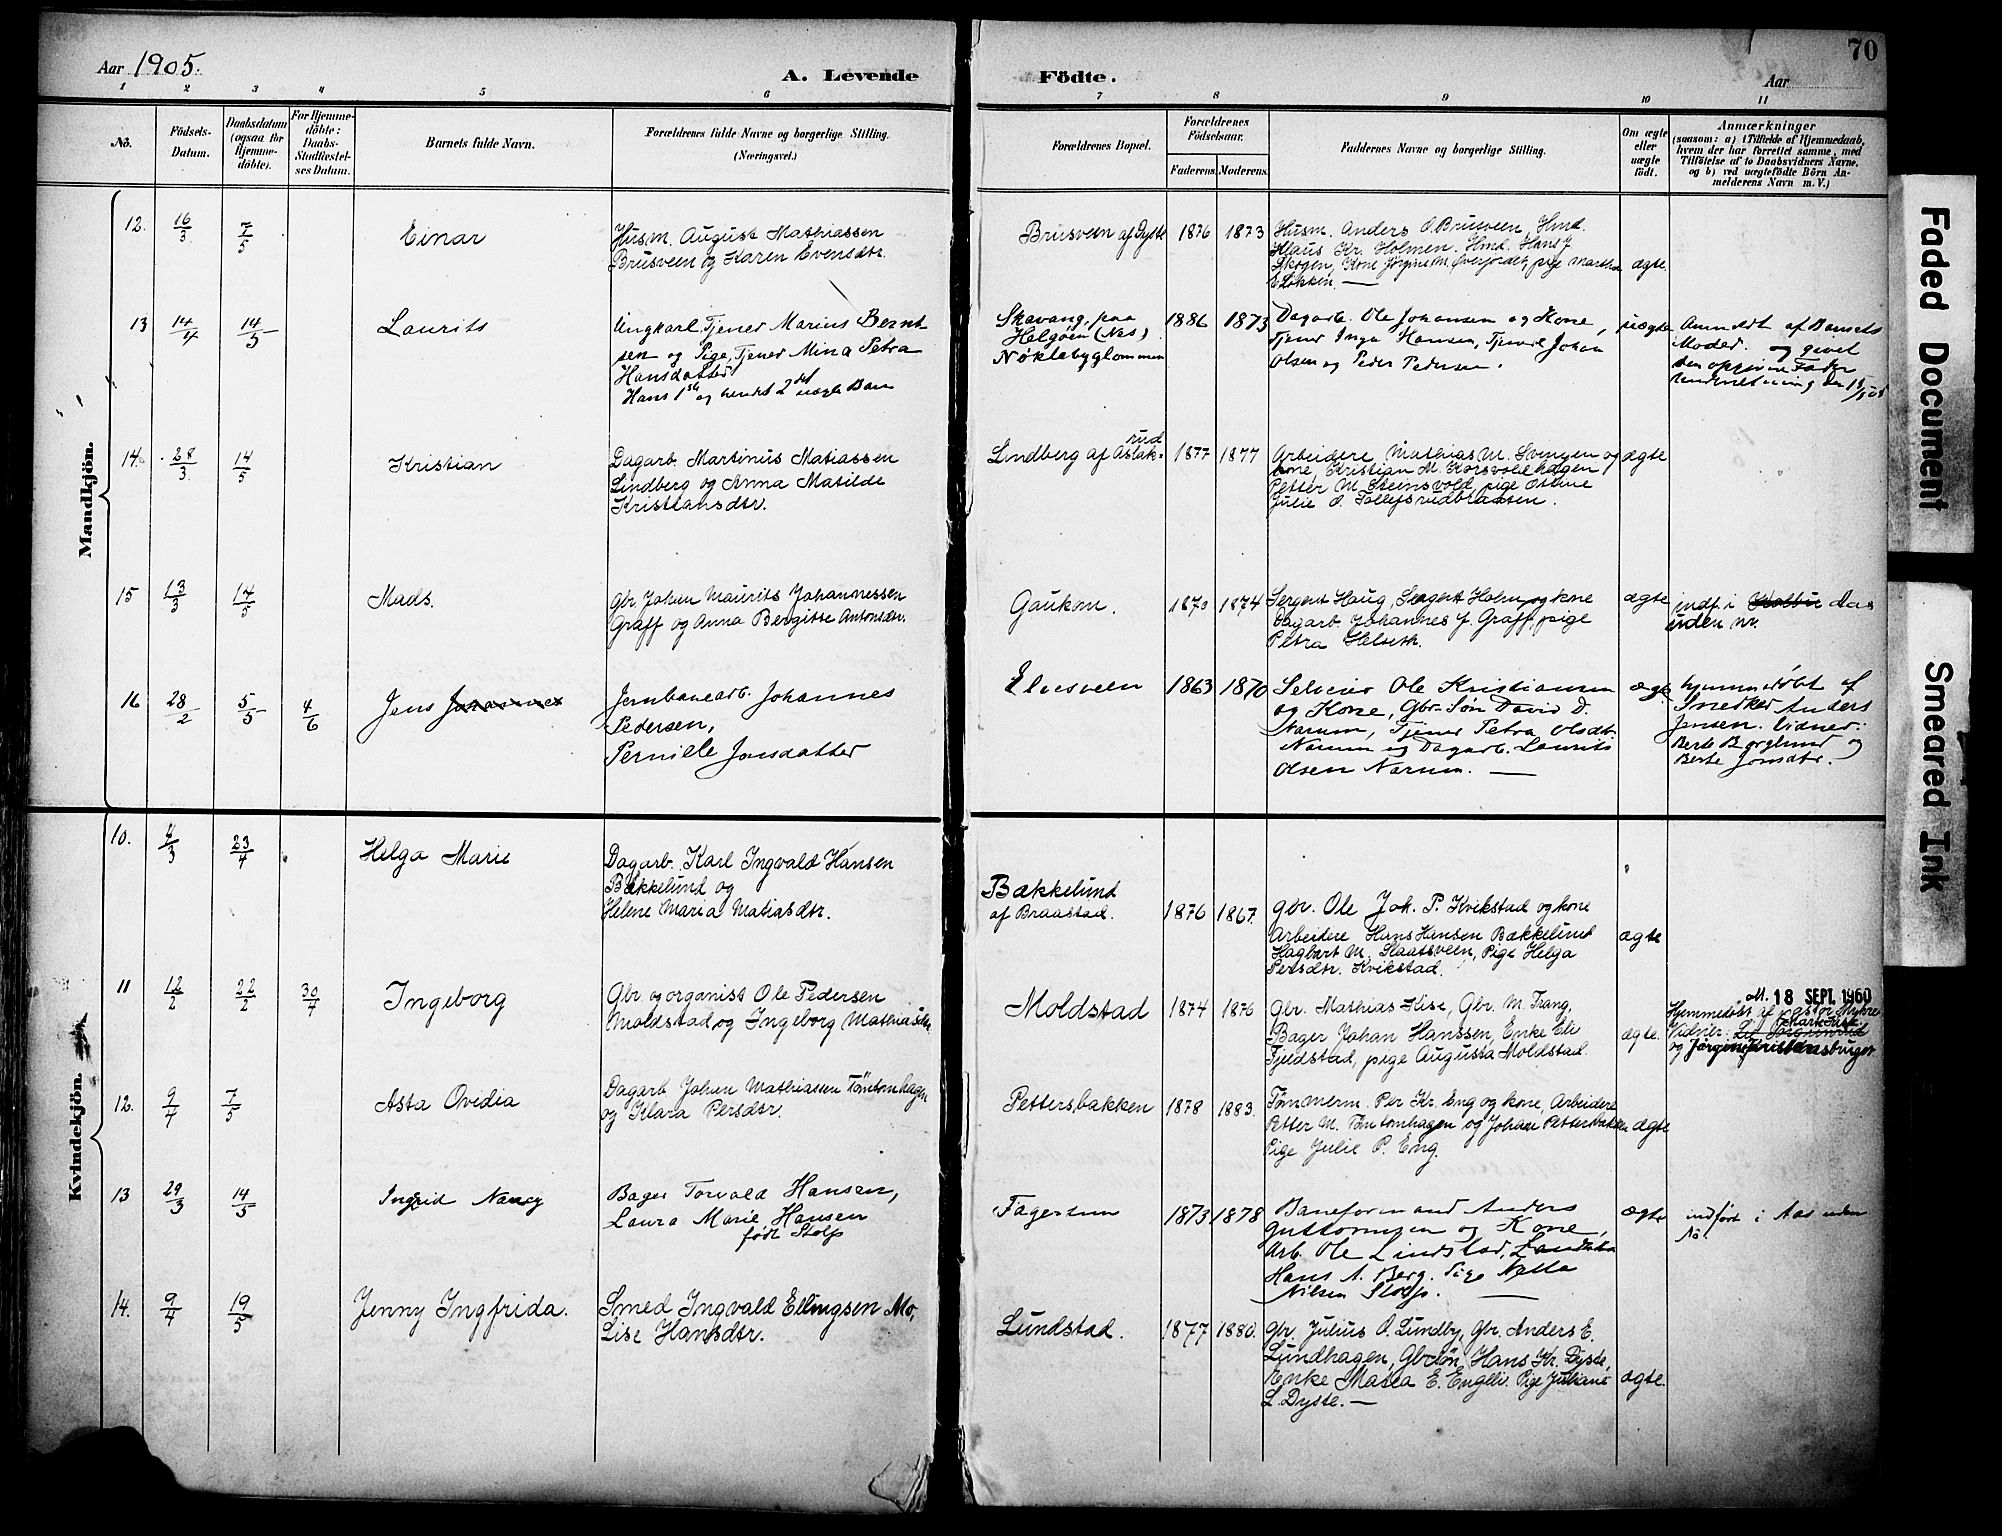 70
Aar 1905.
A. Levende Födte.
Aar
1 2 3 4 5 6 7 8 9 10 11
No.
Födsels-
Datum.
Daabsdatum
(ogsaa for
Hjemme-
döbte).
For Hjemme-
döbte:
Daabs-
Stadfæstel-
ses Datum.
Barnets fulde Navn.
Forældrenes fulde Navne og borgerlige Stilling.
(Næringsvei.)
Forældrenes Bopæl.
Forældrenes
Födselsaar.
Faderens. Moderens.
Faddernes Navne og borgerlige Stilling.
Om ægte
eller
uægte
födt.
Anmærkninger
(saasom: a) i Tilfælde af Hjemmedaab,
hvem der har forrettet samme, med
Tilföielse af to Daabsvidners Navne,
og b) ved uægtefödte Börn An-
melderens Navn m. V.)
Mandkjön.
12. 16/3 7/5 Einar
Husm. August Mathiassen
Brusveen og Karen Evensdtr.
Brusveen af Dyste 1876 1873
Husm. Anders O. Brusveen, Hmd.
Klaus Kr. Holmen. Hmd. Hans J.
Skogen, Kone Jørgine M. Øverjordet, pige Martha
E Løkken. —
ægte.
13 14/4 14/5 Laurits
Ungkarl, Tjener Marius Bernt
sen og Pige, Tjener Mina Petra
Hansdatter
Hans 1ste og hendes 2det uægte Barn
Skavang, paa
Helgøen (Nes)
Nøklebyglommen
1886 1873
Dagarb. Ole Johansen og Kone,
Tjener Inga Hansen, Tjener Johan
Olsen og Peder Pedersen.
uægte
Anmeldt af Barnets
Moder. og givet
den opgivne Fader
underretning den 15/5 05
14. 28/3 14/5 Kristian
Dagarb. Martinus Matiassen
Lindberg og Anna Matilde
Kristiansdtr.
Lindberg af Aslak-
rud
1877 1877
Arbeidere Mathias M. Svingen og
kone, Kristian M. Korsvoldhagen
Petter M. Steinsvold, pige Ovidie
Julie O. Tollefsrudbraaten.
ægte
15 13/3 14/5 Mads.
Gbr. Johan Maurits Johannessen
Graff og Anna Bergitte Antonsdtr.
Gaukom. 1870 1874
Sergent Haug, Sergent Holm og kone
Dagarb. Johannes J. Graff, pige
Petra Selseth.
ægte
indf. i Kolbu Aas
uden nr.
16 28/2 5/5 4/6 Jens Johannes
Jernbanearb. Johannes
Pedersen,
Pernille Jensdatter
Elvesveen 1863 1870
Selveier Ole Kristiansen
og Kone, Gbr. Søn David D.
Narum, Tjener Petra Olsdtr.
Narum og Dagarb. Laurits
Olsen Narum. —
ægte
hjemmedøbt af
Snedker Anders
Jensen. Vidner:
Berte Berglund og
Berte Jonsdtr.
Kvindekjön.
10. 4/3 23/4 Helga Marie
Dagarb. Karl Ingvald Hansen
Bækkelund og
Helene Maria Matiasdtr.
Bækkelund
af Braastad.
1876 1867.
Gbr. Ole Joh. P. Kvikstad og kone
Arbeidere Hans Hansen Bækkelund
Hagbart M. Slaatsveen, Pige Helga
Persdtr. Kvikstad.
ægte
11 12/2 22/2 30/4 Ingeborg
Gbr. og organist Ole Pedersen
Moldstad og Ingeborg Mathiasdtr.
Moldstad 1874 1876
Gbr. Mathias Kise, Gbr. M. Trang,
Bager Johan Hanssen, Enke Eli
Fjeldstad, pige Augusta Moldstad.
ægte.
M. 18 SEPT. 1960
Hjemmedøbt af Pastor Myhre
Vidner:
og Jørgine Kristiansbruget
12. 9/4 7/5 Asta Ovidia
Dagarb. Johan Mathiassen Tömtomhagen
og Klara Persdtr.
Pettersbakken 1878 1883.
Tömmerm. Per Kr. Eng og kone, Arbeidere
Petter M. Tömtomhagen og Johan Pettersbakken
Pige Julie P. Eng.
ægte
13 29/3 14/5 Ingrid Nancy
Bager Torvald Hansen,
Laura Marie Hansen
født Stolp
Fagertun 1873 1878
Baneformand Anders
Guttormsen og Kone,
Arb. Ole Lindstad,
Hans A. Berg. Pige Nella
Nilsen Stolp. —
ægte
indført i Aas uden
No.
14. 9/4 19/5 Jenny Ingfrida.
Smed Ingvald Ellingsen Mo,
Lise Hansdtr.
Lundstad. 1877 1880.
Gbr. Julius O. Lundby, Gbr. Anders E.
Lundhagen, Gbrsön Hans Kr. Dyste,
Enke Matea E. Engeliv. Pige Juliane
L. Dyste. —
ægte.
Faded Document
Smeared Ink